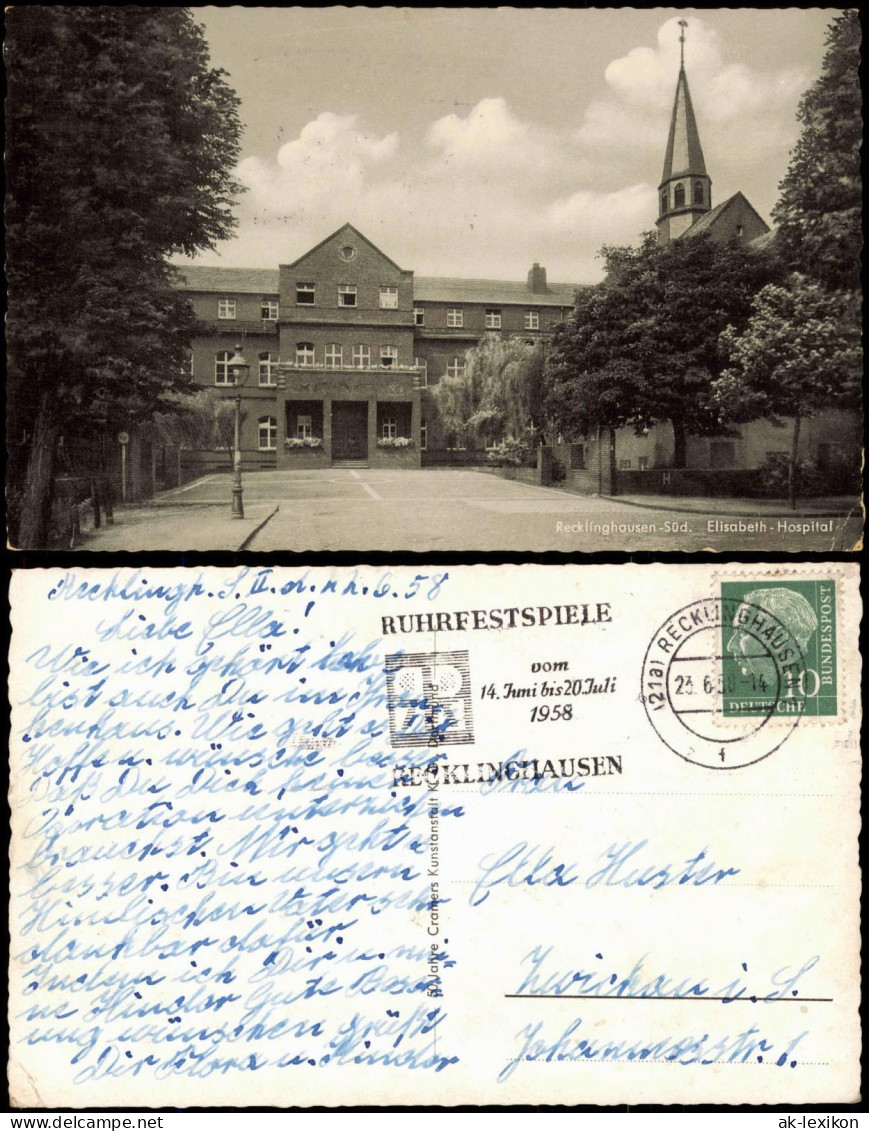 Recklinghausen-Süd. Elisabeth-Hospital
Recklingh. S. II. d. 22. 6. 58
Liebe Ella!
Wie ich gehört habe
bist auch Du im
kenhaus. Wie geht es Dir
Hoffe u. wünsche
Daß Du Dich keine
Operation unterziehen
brauchst. Mir geht es
besser. Bin unsern
Himlischen Vater sehr
dankbar dafür.
Indem ich Dir u.
ne Kinder Gute Besser
ung wünschen grüßt
Dir Flora u. Kinder
50 Jahre Cramers Kunstanstalt KG, Dortmund
RUHRFESTSPIELE
vom
14. Juni bis 20. Juli
1958
RECKLINGHAUSEN
(21a) RECKLINGHAUSEN
23.6.58-14
f
10
DEUTSCHE
BUNDESPOST
Frau
Ella Huster
Zwickau i. S.
Johannesstr. 1.
ak-lexikon